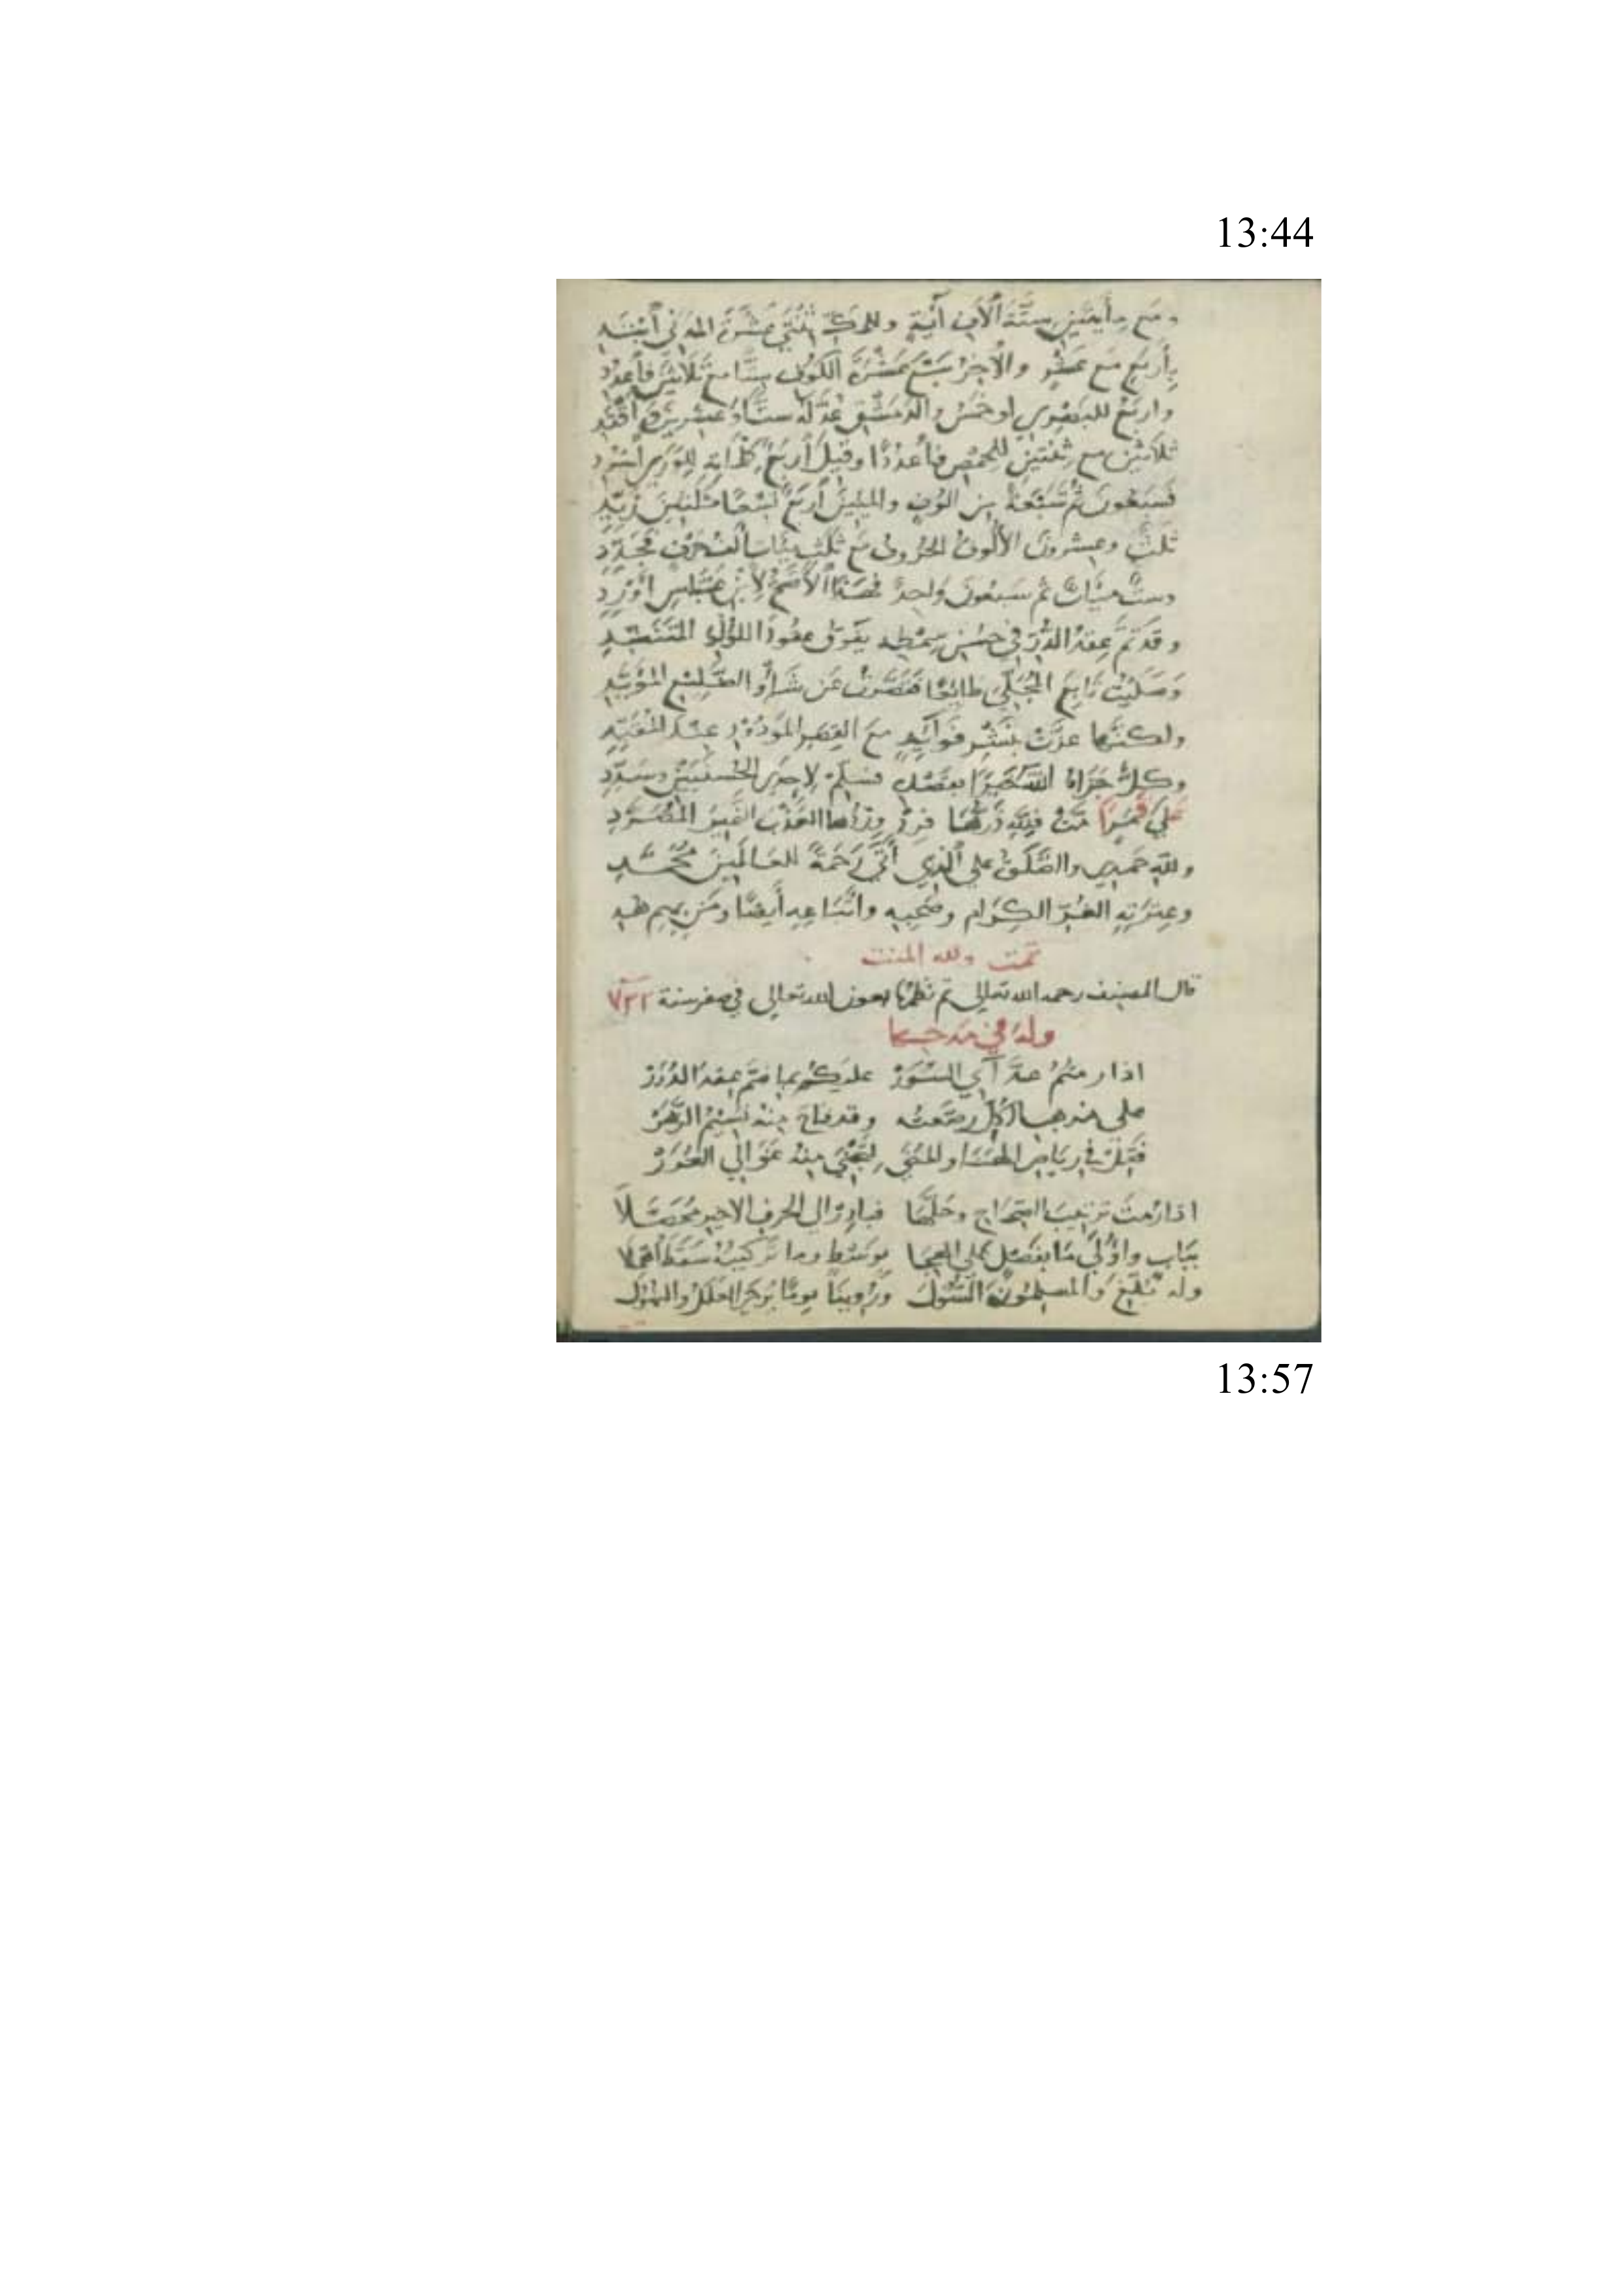 13:44
ومع مأيتين ستة آلاف آية وللمك ثنتي عشرة المدني أسند
بأربع مع عشر والاخر سبع عشرة الكوف ستا مع ثلاثين فأعدد
واربع للبصري او خمس والدمشقي عد له ستا وعشرين
ثلاثين مع ثنتين للحمص فأعددا وقيل أربع
فسبعون ثم سبعة من الوف والمئين أربع تسعا
ثلث وعشرون الألوف الحروف مع ثلث مئات
وست مئات ثم سبعون واحد فهذا الأصح لابن عباس اورد
وقد تم عقد الدر في حسن سمطه يفوق عقود اللؤلؤ المتنضد
وصليت تابع المجلي طائعا فقصرت عن شأو الضليع المؤيد
ولكنها عزت بنشر فوائد مع القصر عند المقيد
وكل جزاه الله خيرا بفضله فسلم لاحدى الحسنيين وسدد
على مت فلله درها فرد وردها العذب النمير المصرد
ولله حمدي والصلوة على الذي أتى رحمة للعالمين محمد
وعترته الغر الكرام وصحبه واتباعه أيضا ومن بهم هد
تمت ولله المنت
قال المصنف رحمه الله تعالى تم نظمها بعون الله تعالى في صفر سنة ٧٣٢
وله في مدحها
اذا رمتم عد آي السور عليكم بما ضم عقد الدرر
حلى مذهبا لاكل رصعته وقد فاح منه نسيم الزهر
فجل في رياض الهنا والمنى لتجني منه غوالي الغرر
اذا رمت ترتيب الصحاح وحلها فبادر الى الحرف الاخير محصلا
بباب واولى ما بفصل على الهجا بوسط وما تركيبه سقط اهملا
وله تبلغ والمسلمون السول وروينا يوما
13:57